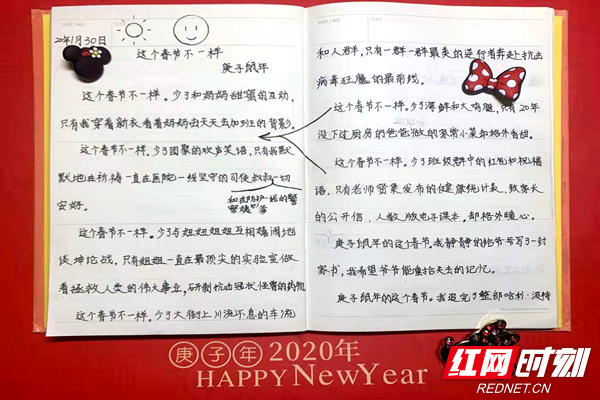 20年1月30日
这个春节不一样
庚子鼠年
这个春节不一样。少了和妈妈甜蜜的互动,
只有我穿着新衣看着妈妈由天去加班的背影。
这个春节不一样。少了团聚的欢声笑语,只有我默
默地在祈祷一直在医院一线坚守的司徒叔叔一切
安好。
和在防护一线的警察
这个春节不一样。少了与妞妞姐姐互相嬉闹地
谈坤论战,只有妞妞一直在最顶尖的实验室做
着拯救人类的伟大事业,研制抗击冠状怪兽的药物
这个春节不一样。少了大街上川流不息的车流
和人群,只有一群一群最美的逆行者奔赴抗击
病毒狂魔的最前线。
这个春节不一样。少了海鲜和大鸡腿,只有20年
没下过厨房的爸爸做的家常小菜却格外香甜。
这个春节不一样。少了班级群中的红包和祝福
语,只有老师密集发布的健康统计表、致家长
的公开信、人教版电子课本,却格外暖心。
庚子鼠年的这个春节。我静静的给爷爷写了一封
家书,我希望爷爷能重拾失去的记忆。
庚子鼠年的这个春节。我追完了整部哈利·波特
庚子年 2020年
HAPPY New Year
红网时刻
REDNET.CN